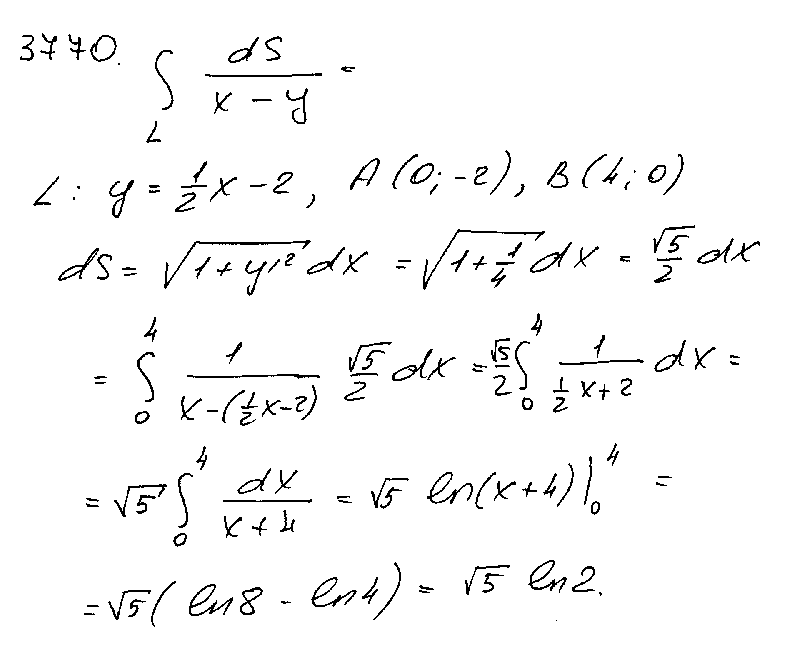 3770. ∫_L dS/(x − y) =
L: y = 1/2 x − 2, A(0; −2), B(4; 0)
dS = √(1 + y'²) dx = √(1 + 1/4) dx = √5/2 dx
= ∫_0^4 1/(x − (1/2 x − 2)) √5/2 dx = √5/2 ∫_0^4 1/(1/2 x + 2) dx =
= √5 ∫_0^4 dx/(x + 4) = √5 ln(x + 4) |_0^4 =
= √5 (ln 8 − ln 4) = √5 ln 2.